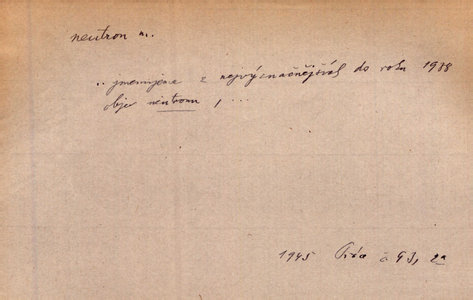 neutron m.
.. jmenujeme z nejvýznačnějších do roku 1938
objev neutronu, ...
1945 č 43, 2a